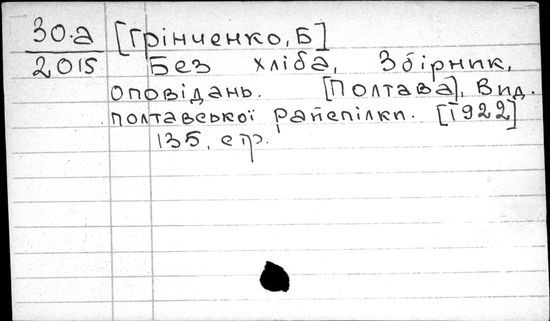 30.а [Грінченко, Б]
2015 Без хліба, Збірник,
оповідань. [Полтава], Вид.
полтавської райспілки. [1922]
135, стр.